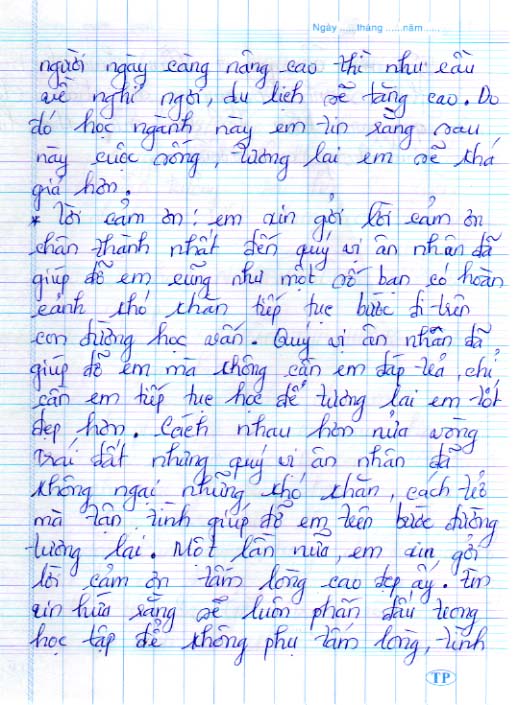 Ngày ......tháng ......năm......
người ngày càng nâng cao thì nhu cầu
về nghỉ ngơi, du lich sẽ tăng cao. Do
đó học ngành này em tin rằng sau
này cuộc sống, tương lai em sẽ khá
giả hơn.
* Lời cảm ơn: em xin gởi lời cảm ơn
chân thành nhất đến quý vị ân nhân đã
giúp đỡ em cũng như một số bạn có hoàn
cảnh khó khăn tiếp tục bước đi trên
con đường học vấn. Quý vị ân nhân đã
giúp đỡ em mà không cần em đáp trả, chỉ
cần em tiếp tục học để tương lai em tốt
đẹp hơn. Cách nhau hơn nửa vòng
trái đất nhưng quý vị ân nhân đã
không ngại những khó khăn, cách trở
mà tận tình giúp đỡ em trên bước đường
tương lai. Một lần nữa, em xin gởi
lời cảm ơn tấm lòng cao đẹp ấy. Em
xin hứa rằng sẽ luôn phấn đấu trong
học tập để không phụ tấm lòng, tình
TP